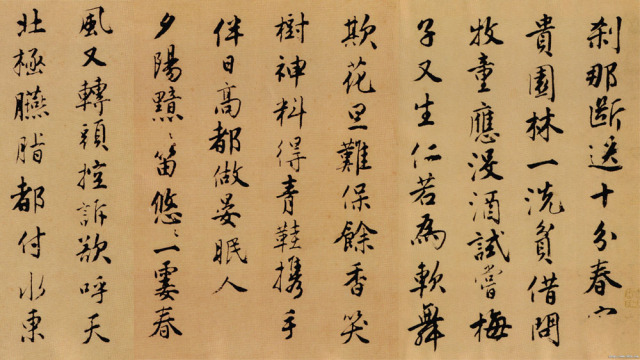 刹那斷送十分春
貴園林一洗貧借問
牧童應没酒試嘗梅
子又生仁若為軟舞
欺花旦難保餘香笑
樹神料得青鞋攜手
伴日高都做晏眠人
夕陽黯〻笛悠〻一霎春
風又轉頭控訴欲呼天
北極臙脂都付水東